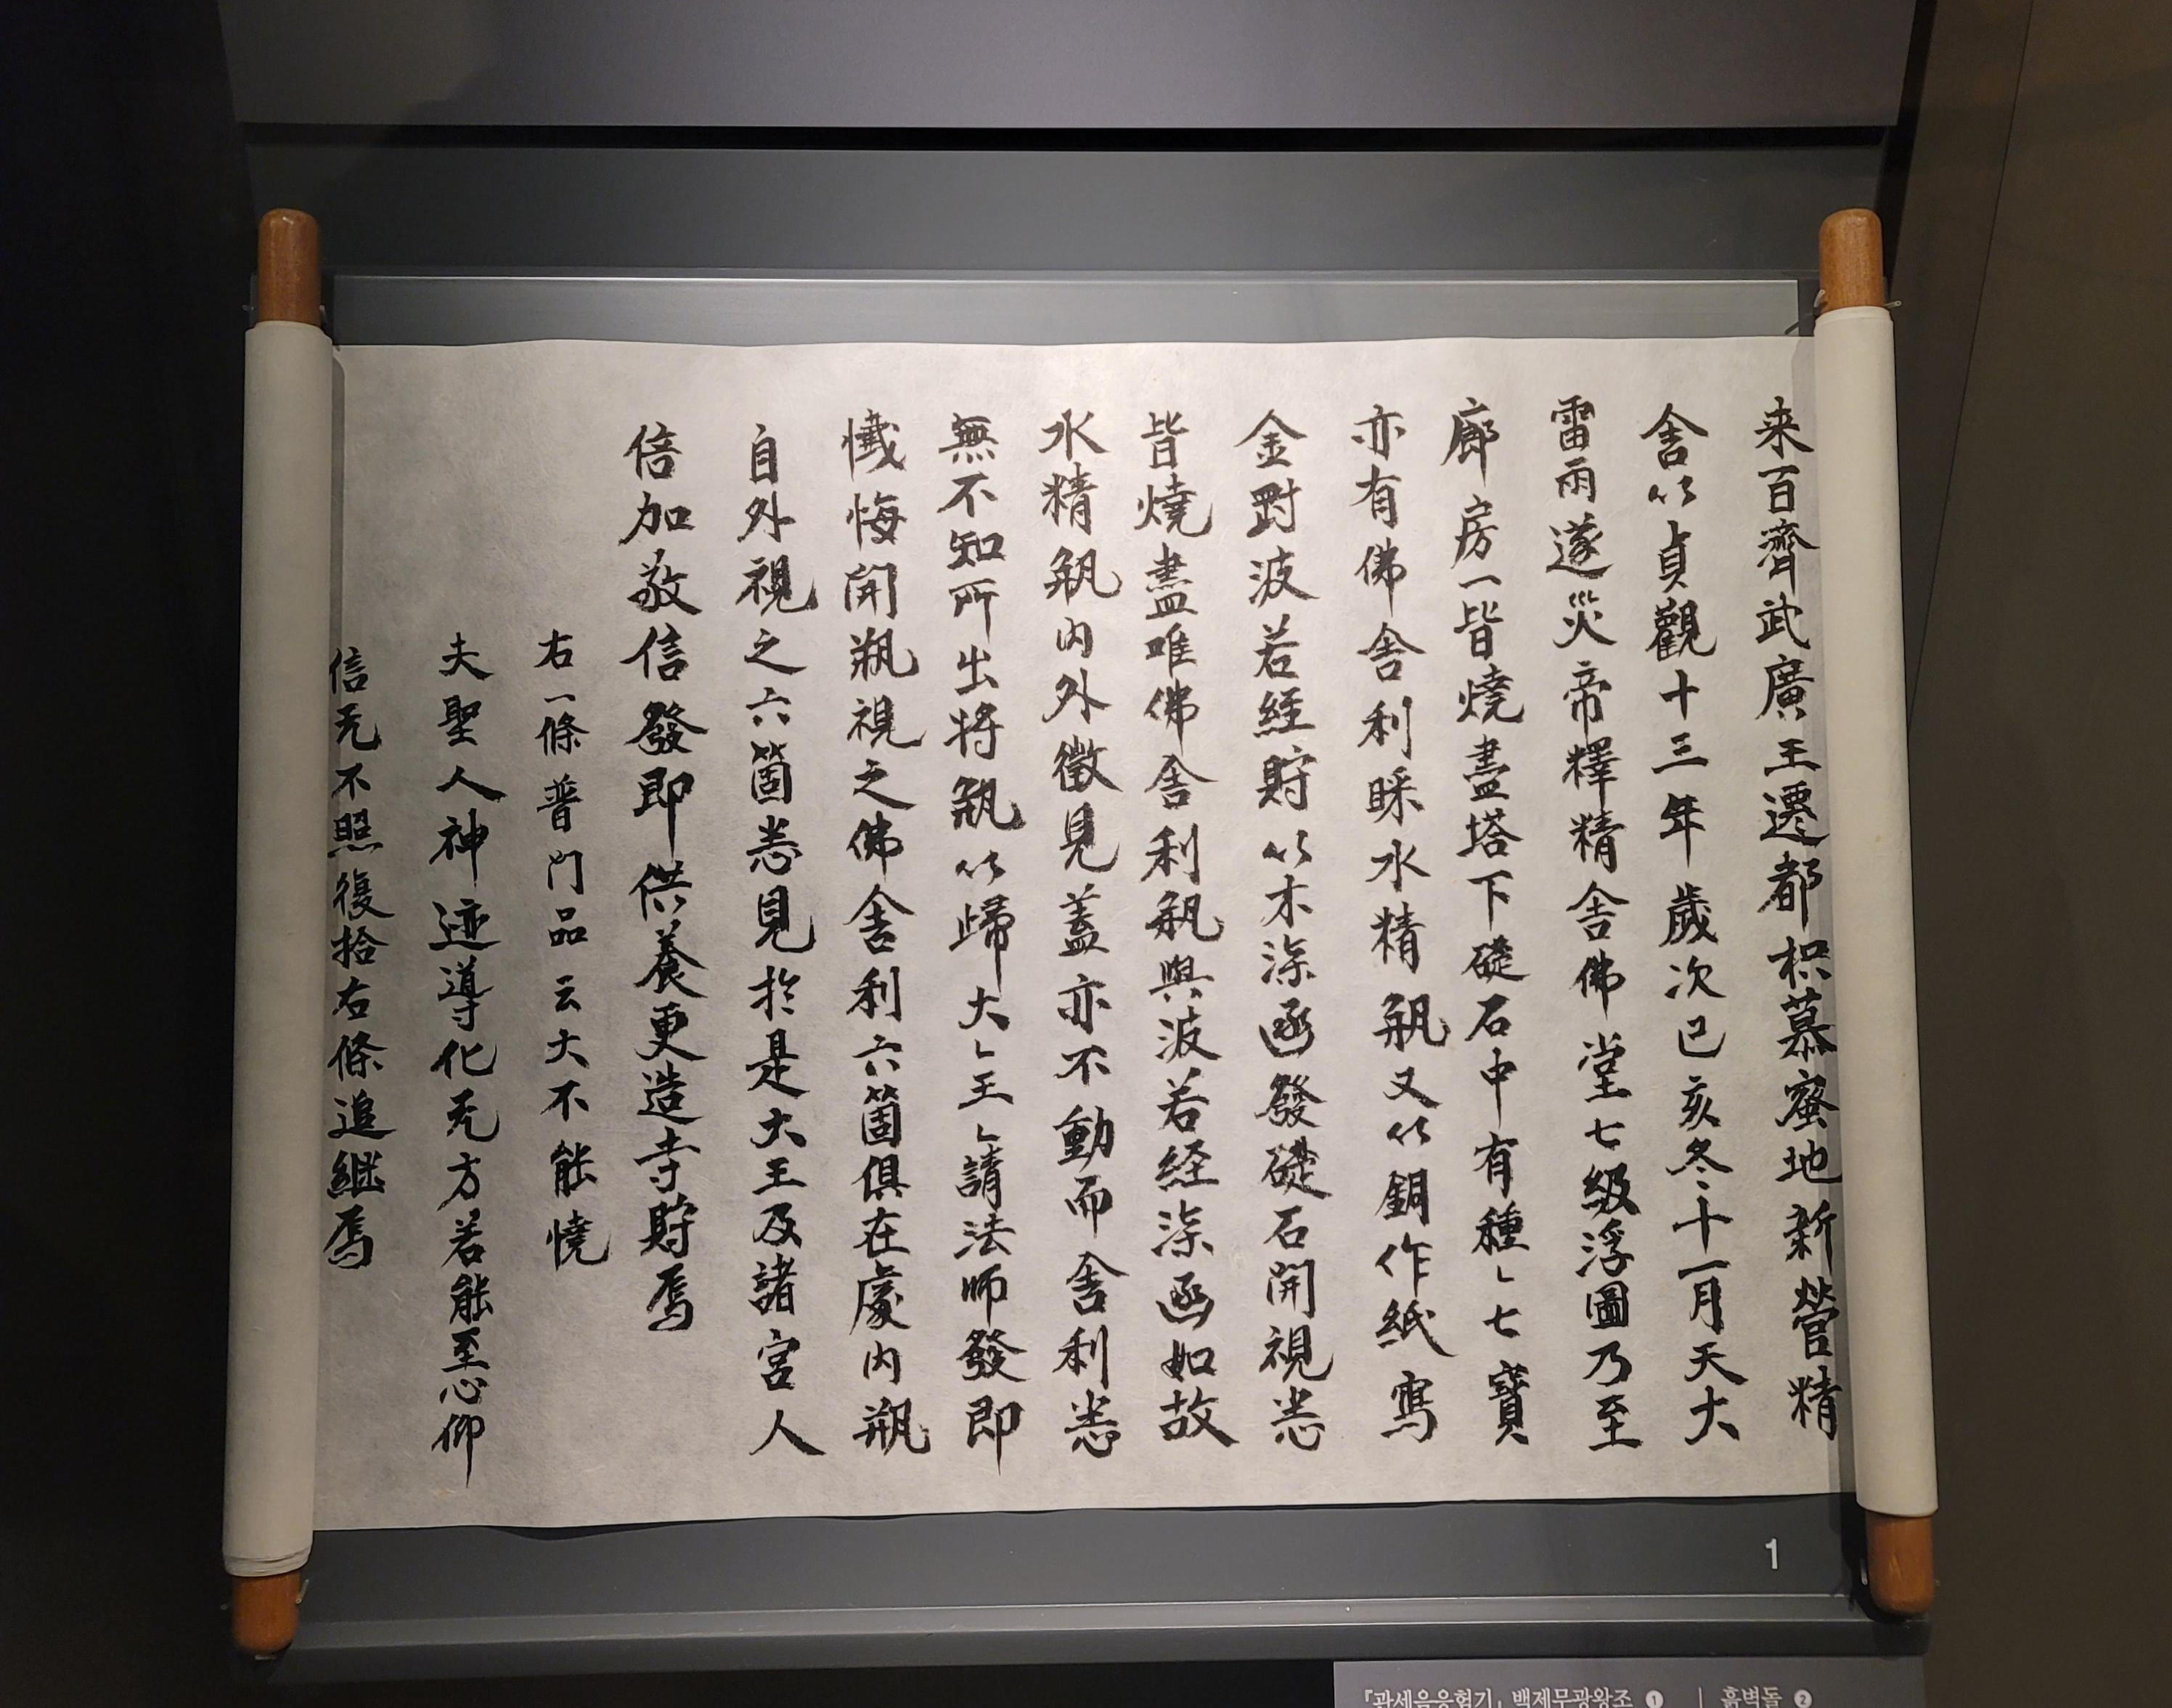 来百濟武廣王遷都枳慕蜜地新營精
舍以貞觀十三年歲次己亥冬十一月天大
雷雨遂災帝釋精舍佛堂七級浮圖乃至
廊房一皆燒盡塔下礎石中有種〻七寶
亦有佛舍利睬水精瓶又以銅作紙寫
金對波若經貯以木㓒函發礎石開視悉
皆燒盡唯佛舍利瓶與波若経㓒函如故
水精瓶內外徹見蓋亦不動而舍利悉
無不知所出将瓶以歸大〻王〻請法師發即
懺悔開瓶視之佛舍利六箇俱在處內瓶
自外視之六箇悉見於是大王及諸宮人
倍加敬信發即供養更造寺貯焉
右一條普門品云火不能燒
夫聖人神迹導化无方若能至心仰
信无不照復拾右條追継焉
1
『관세음응험기』 백제무광왕조 1 | 흙벽돌 2